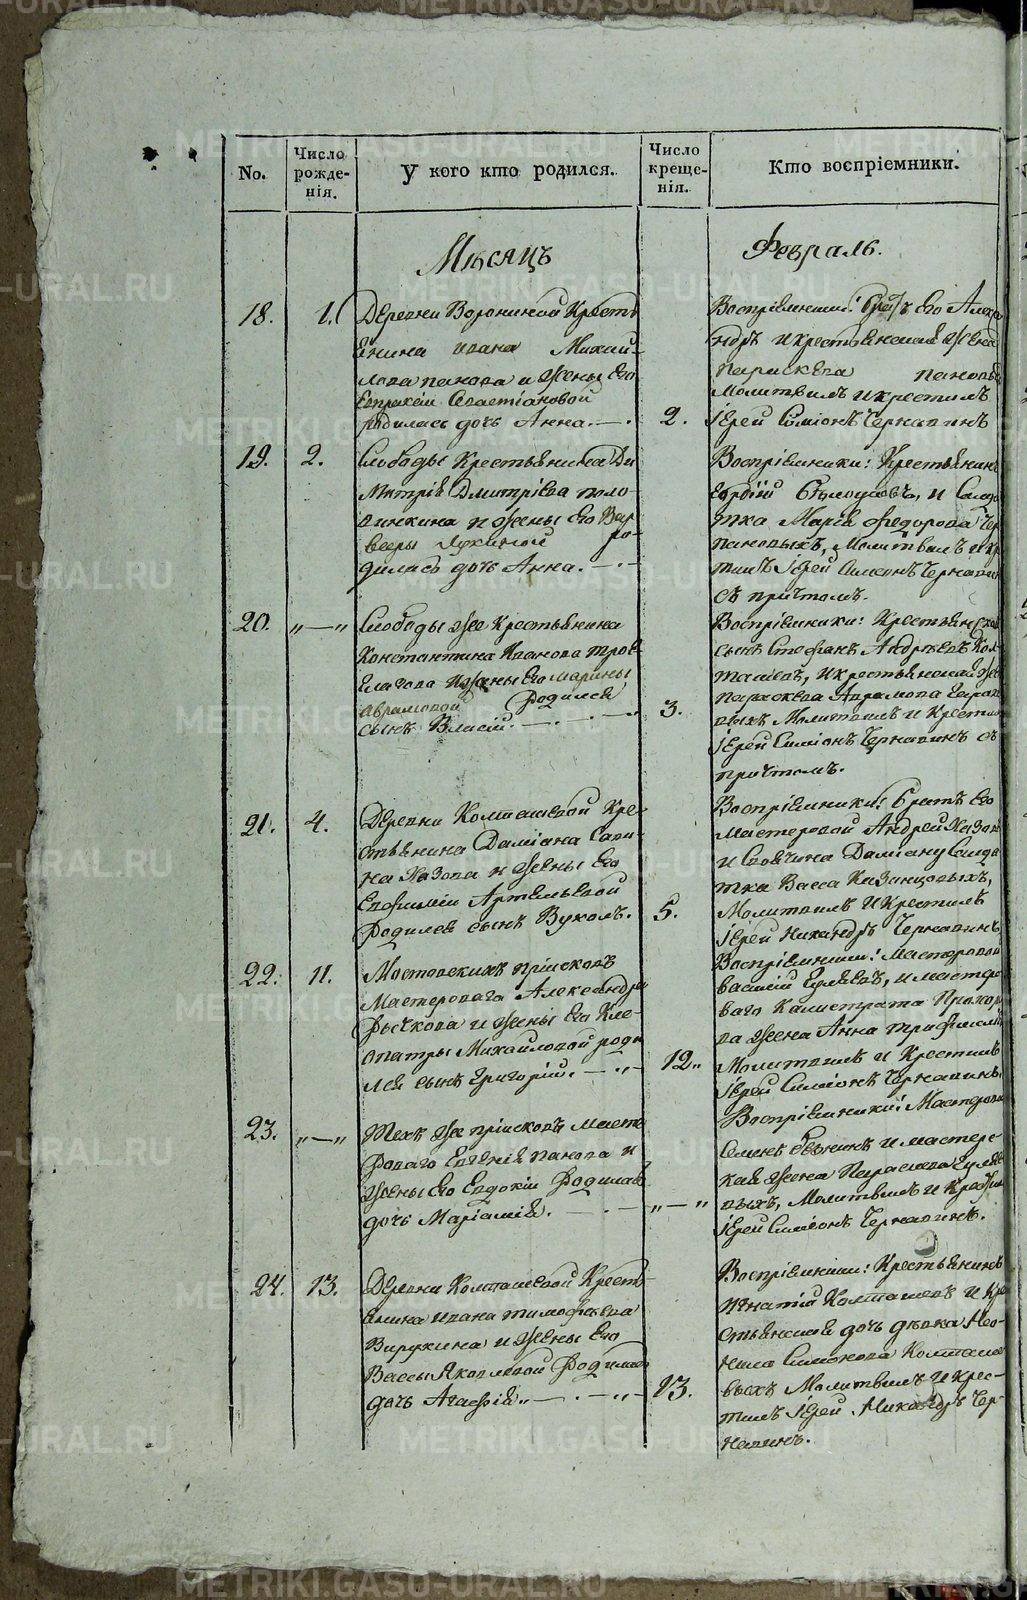 No.
Число рожде-нія.
У кого кто родился.
Число креще-нія.
Кто воспріемники.
Мѣсяцъ
Февраль.
18.
1.
Деревни Ворониной Кресть
янина Ивана Михай-
лова Панова и жены Его
Евпраксіи Севастіановой
родилась дочь Анна.
2.
Воспріемники: братъ Его Алекса
ндръ и крестьянская жена
Параскева Пановы
Молитвилъ и крестилъ
Іерей Симіонъ Чернавинъ
19.
2.
Слободы Крестьянина Ди
митрія Дмитріева Поло-
винкина и жены Его Вар
вары Лукиной ро-
дилась дочь Анна.
Воспріемники: Крестьянинъ
и Солда
тка Марія Федорова Чер
пановыхъ, Молитвилъ и кре
стилъ Іерей Симеонъ Чернавин
съ причтомъ.
20.
„ — „
Слободы же Крестьянина
Константина Иванова
и жены Его Марины
Аврамовой Родился
сынъ Власій.
3.
Воспріемники: Крестьянскій
сынъ Стефанъ Андреевъ Кол-
ташевъ, и крестьянская же
Параскева Аврамова
выхъ Молитвилъ и Крестил
Іерей Симіонъ Чернавинъ съ
причтомъ.
21.
4.
Деревни Колташевой Кре-
стьянина Даміана Сави
на Назова и жены Его
Евфиміи Артемьевой
Родился сынъ Вуколъ.
5.
Воспріемники: братъ Его
Мастеровой Андрей Назов
и Солда
тка Васса Казанцовыхъ,
Молитвилъ и Крестилъ
Іерей Никандръ Чернавинъ
22.
11.
Мостовскихъ пріисковъ
Мастероваго Александра
Рычкова и жены Его Кле-
опатры Михайловой роди
лся сынъ Григорій.
12.
Воспріемники: Мастеровой
Василій Гуляевъ, и мастеро
ваго Калистрата Прохор
ва жена Анна Трифилова
Молитвилъ и Крестилъ
Іерей Симіонъ Чернавинъ.
23.
„ — „
Техъ же пріисковъ Масте
роваго Евгенія Панова и
жены Его Евдокіи Родилась
дочь Маріамія.
„ — „
Воспріемники: Мастеровой
и мастерс-
кая жена Параскева Гуляе
выхъ, Молитвилъ и Крестил
Іерей Симіонъ Чернавинъ.
24.
13.
Деревни Колташевой Кресть-
янина Ивана Тимофѣева
Вирухина и жены Его
Вассы Яковлевой Родилась
дочь Агафія.
13.
Воспріемники: Крестьянинъ
Игнатій Колташевъ и Кре
стьянская дочь дѣвка Нео-
нила Симонова Колташе
выхъ Молитвилъ и Крес-
тилъ Іерей Никандръ Чер-
навинъ.
METRIKI.GASO-URAL.RU